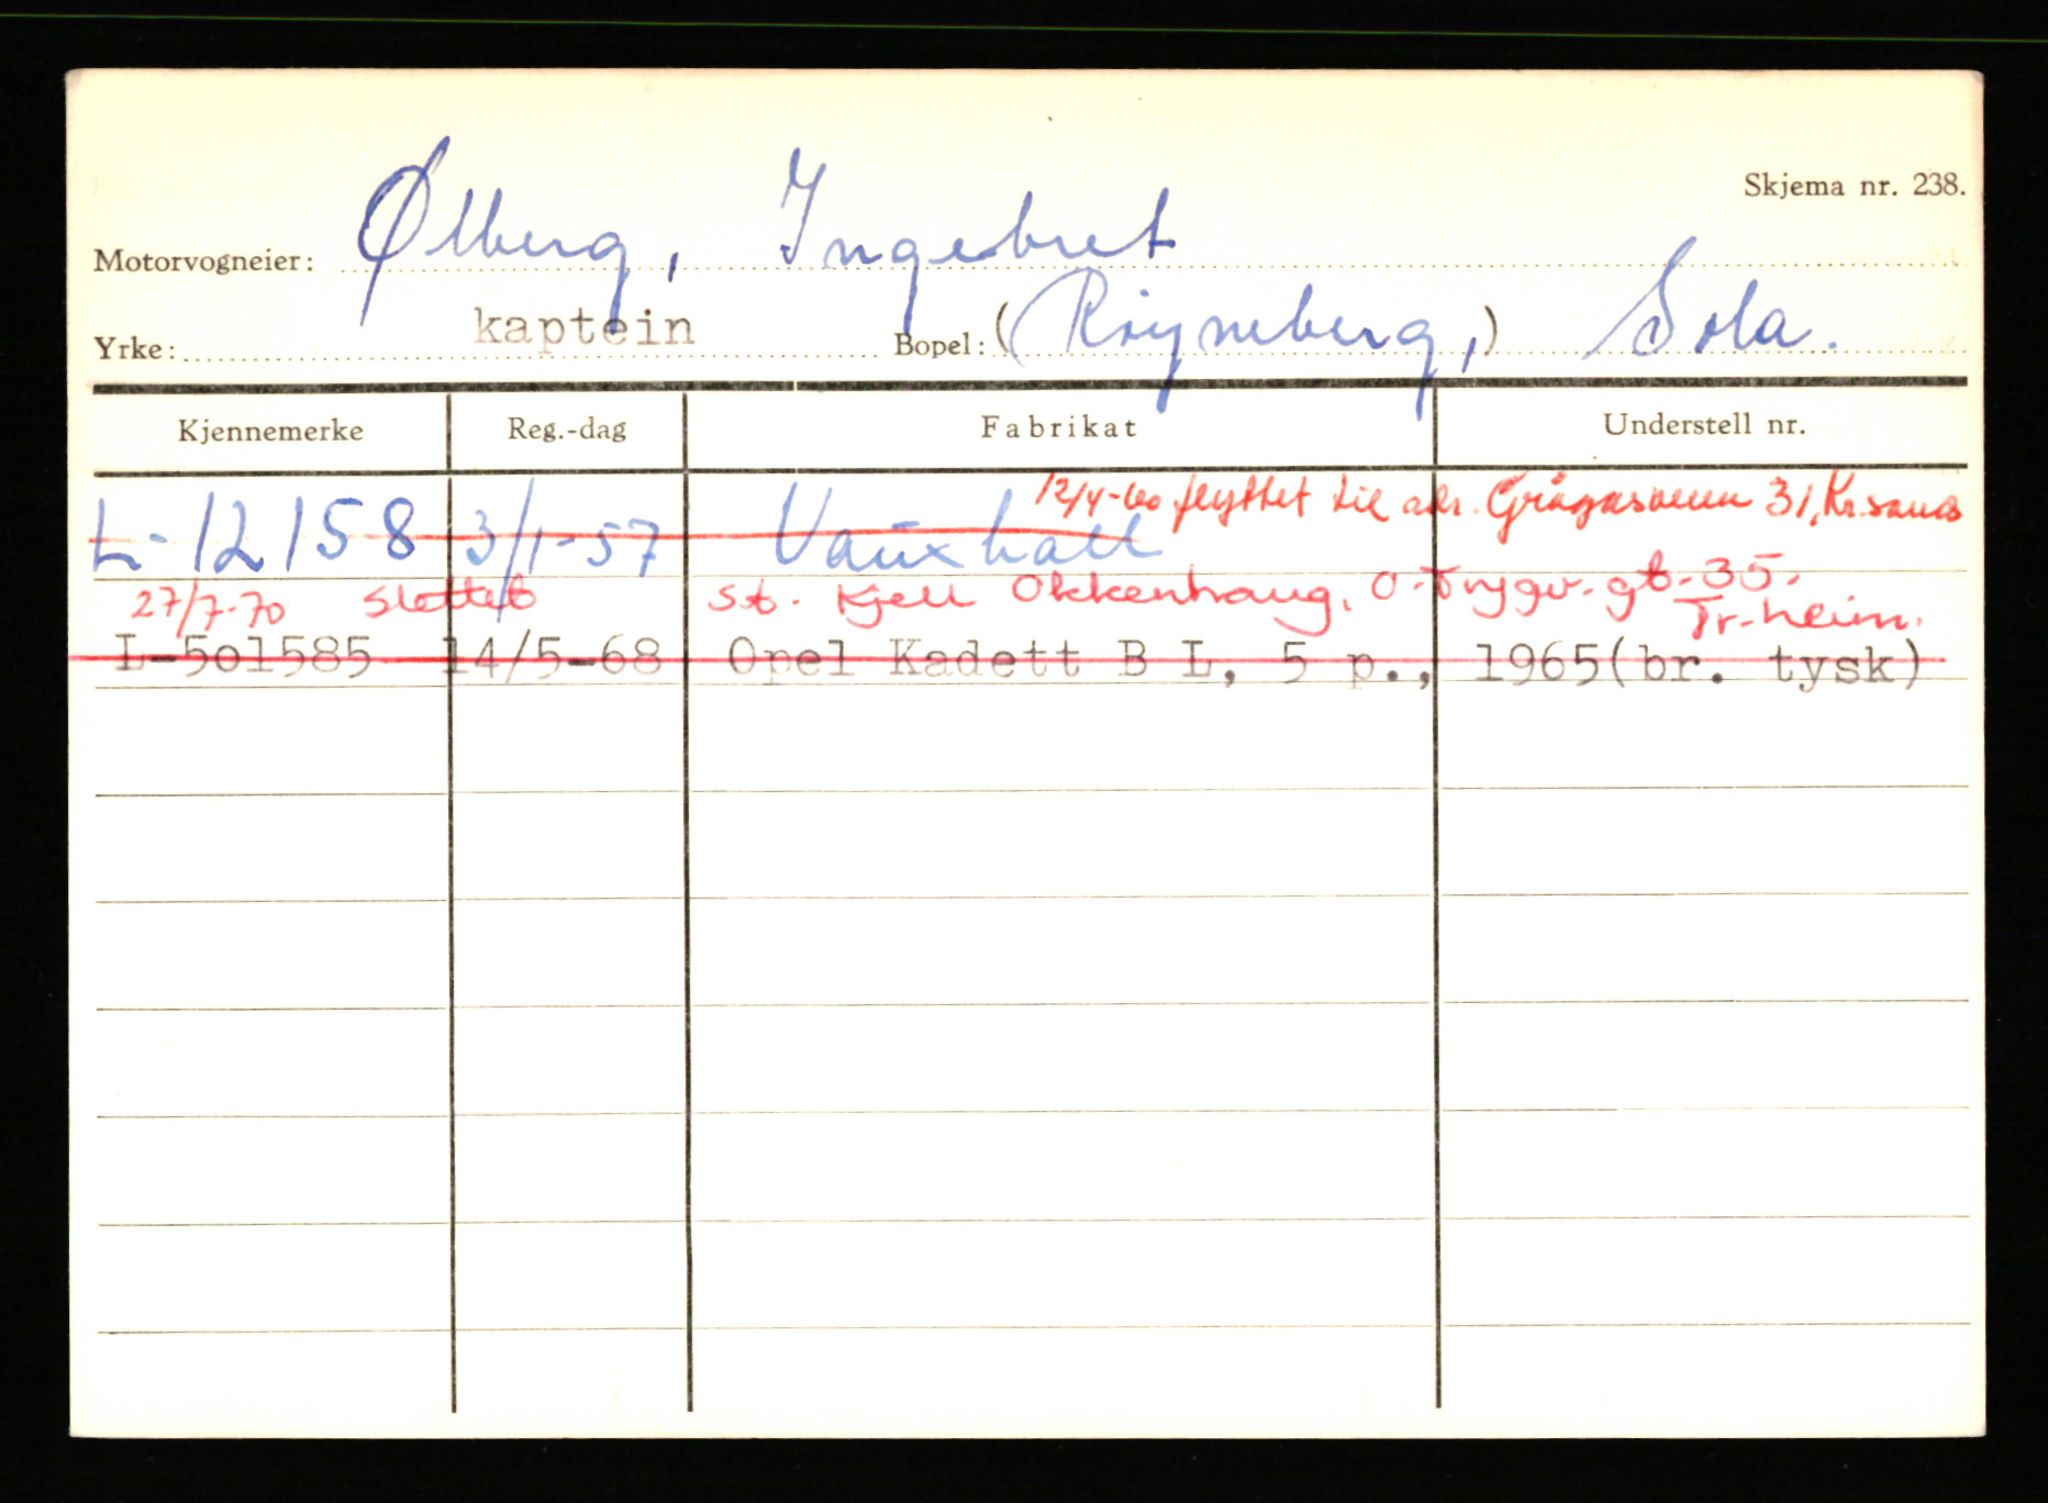 Skjema nr. 238.
Motorvogneier: Ølberg, Ingebret
Yrke: kaptein Bopel: (Røyneberg,) Sola.
Kjennemerke Reg.-dag Fabrikat Understell nr.
12/4-60 flyttet til adr. Grågåsveien 31, Kr.sand
L-12158 3/1-57 Vauxhall
27/7-70 Slettet st. Kjell Okkenhaug, O. Trygv. gt. 35.
Tr-heim.
L-501585 14/5-68 Opel Kadett B L, 5 p., 1965(br. tysk)